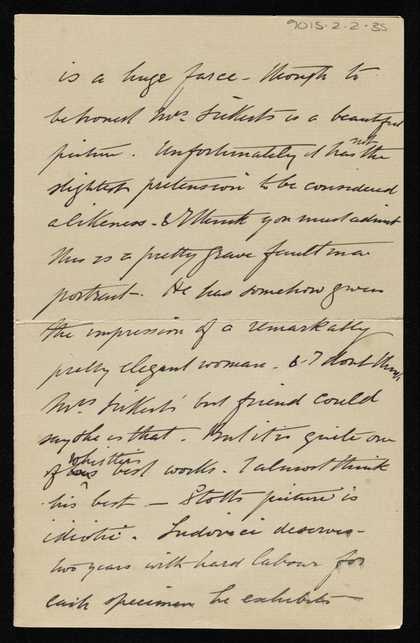 9015-2-2-35
is a huge farce - though to
be honest Mrs. Sickerts is a beautiful
picture. Unfortunately it has not the
slightest pretension to be considered
a likeness - & I think you must admit
this is a pretty grave fault in a
portrait - He has somehow given
the impression of a remarkably
pretty elegant woman. & I dont think
Mrs Sickerts' best friend could
say she is that. But it is quite one
of Whistlers best works. I almost think
his best - Stotts picture is
idiotic. Ludovici deserves
two years with hard labour for
each specimen he exhibits -